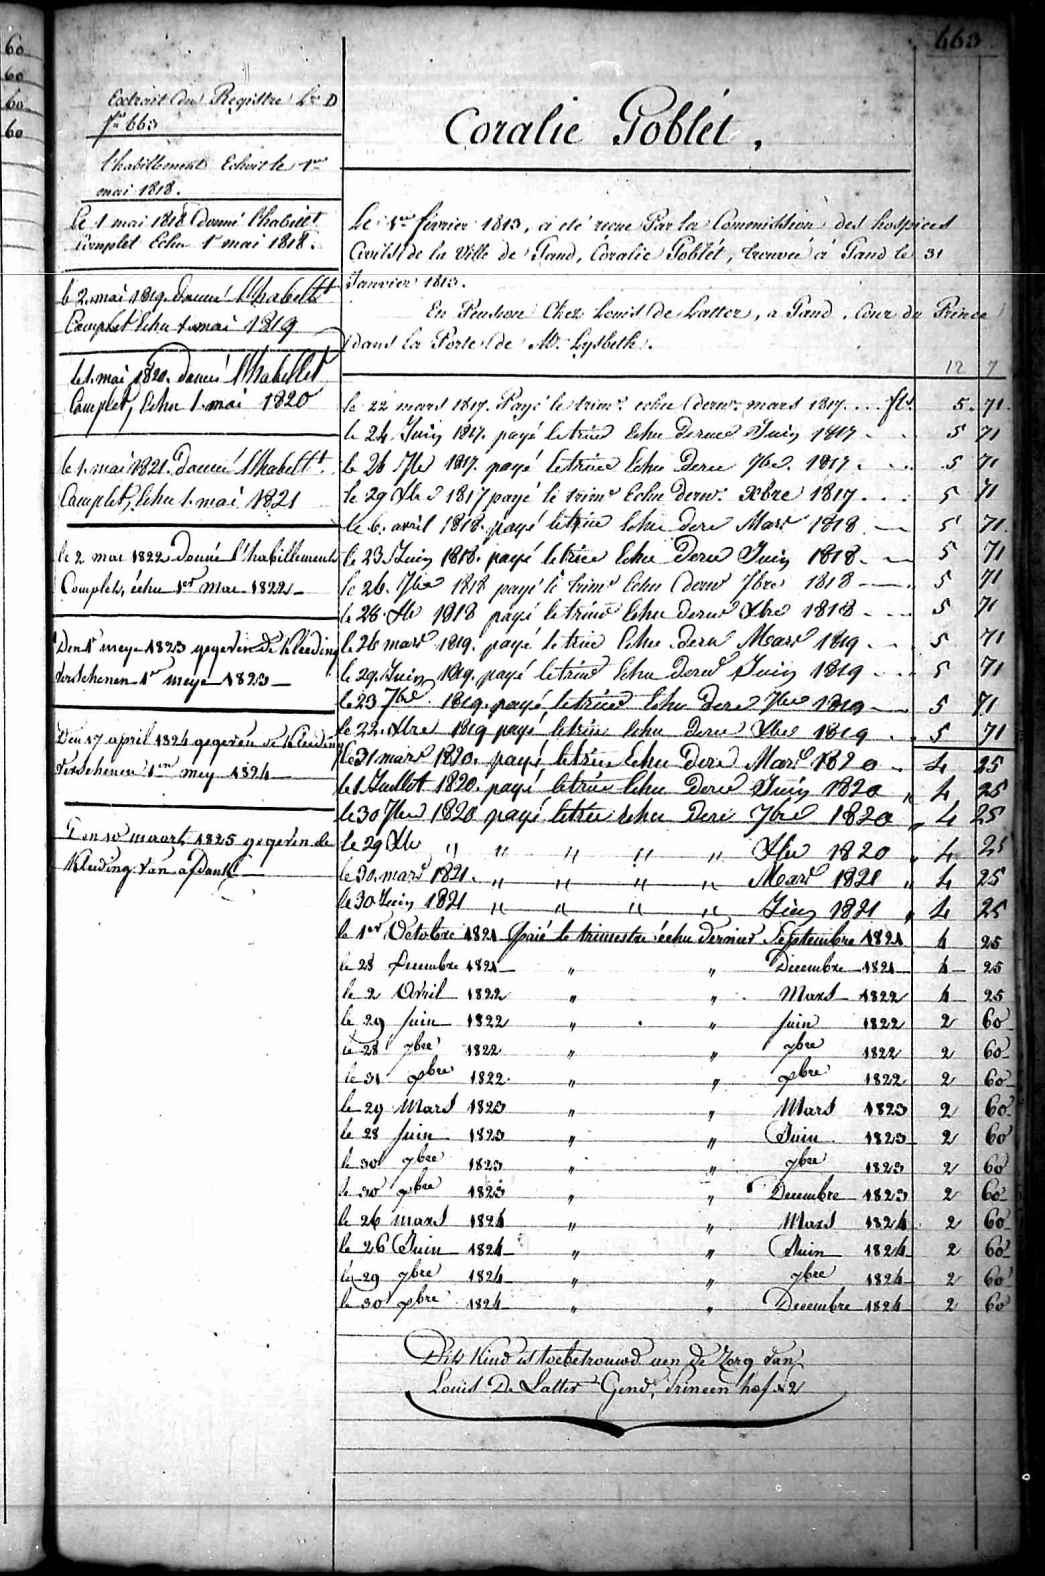 60
60
60
60
663
Extrait du Registre L.re D
f.o 663
l'habillement Echoit le 1.er
mai 1818.
Le 1 mai 1818 donné l'habill.t
Complet Echu 1 mai 1818.
le 2. mai 1819. donné l'habellt
Complet Echu 1. mai 1819
le 1. mai 1820. donné l'habellet
Complet, Echu 1. mai 1820
le 1. mai 1821. donné l'habellt.
Complet, Echu 1. mai 1821
le 2 mai 1822 donné l'habillement
Complet, échu 1er Mai 1822
Den 1 meye 1823 gegeven de kleeding
verschenen 1 meye 1823
Den 17 april 1824 gegeven de kleeding
verschenen 1en mey 1824
Den 10 maart 1825 gegeven de
kleeding van afdank
Coralie Goblét.
Le 1.er février 1813, a été reçue Par la Commission des hospices
Civils de la Ville de Gand, Coralie Goblét, trouvée à Gand le 31
Janvier 1813.
En Pension Chez Louis de Latter, a Gand, Cour du Prince
dans la Porte de Mr. Lysbeth.
12 7
le 22 mars 1817. Payé le trim.e echu dernr. mars 1817. . . . fls. 5. 71.
le 24. Juin 1817. payé le trime Echu dernr Juin 1817 . . . 5 71
le 26 7bre 1817. payé le trime Echu Dernr 7bre. 1817. . . . 5 71
le 29 Xbre 1817 payé le trime Echu dernr. Xbre 1817. . . . 5 71
le 6. avril 1818. payé le trime Echu dernr Mars 1818. 5 71.
le 23 Juin 1818. payé le trime Echu Dernr Juin 1818. 5 71
le 26. 7bre 1818 payé le trime Echu dernr 7bre 1818 5 71
le 28. Xbre 1818 payé le trime Echu dernr Xbre 1818 5 71
le 26 mars 1819. payé le trime Echu dernr Mars 1819 5 71
le 29. Juin 1819. payé le trime Echu dernr Juin 1819 . . . 5 71
le 23 7bre 1819. payé le trime Echu dernr 7bre 1819 5 71
le 22. Xbre 1819 payé le trime Echu Dernr Xbre 1819 5 71
le 31 mars 1820. payé le trime Echu Dernr Mars 1820 4 25
le 1 Juillet 1820. payé le trime Echu Dernr Juin 1820 " 4 25
le 30 7bre 1820 payé le trime echu Dernr 7bre 1820 " 4 25
le 29 Xbre " " " " " Xbre 1820 " 4 25
le 30. mars 1821. " " " " " Mars 1821 " 4 25
le 30 Juin 1821 " " " " " Juin 1821 " 4 25
le 1er Octobre 1821 Payé le trimestre échu dernier Septembre 1821 4 25
le 28 Decembre 1821 " " Decembre 1821 4 25
le 2 Avril 1822 " " Mars 1822 4 25
le 29 juin 1822 " " juin 1822 2 60
le 28 7bre 1822 " " 7bre 1822 2 60
le 31 Xbre 1822 " " Xbre 1822 2 60
le 29 Mars 1823 " " Mars 1823 2 60
le 28 juin 1823 " " Juin 1823 2 60
le 30 7bre 1823 " " 7bre 1823 2 60
le 30 Xbre 1823 " " Decembre 1823 2 60
le 26 mars 1824 " " Mars 1824 2 60
le 26 Juin 1824 " " Juin 1824 2 60
le 29 7bre 1824 " " 7bre 1824 2 60
le 30 Xbre 1824 " " Decembre 1824 2 60
Dit Kind is toebetrouwd aen de Zorg van
Louis De Latter Gend, Princen hof N 2